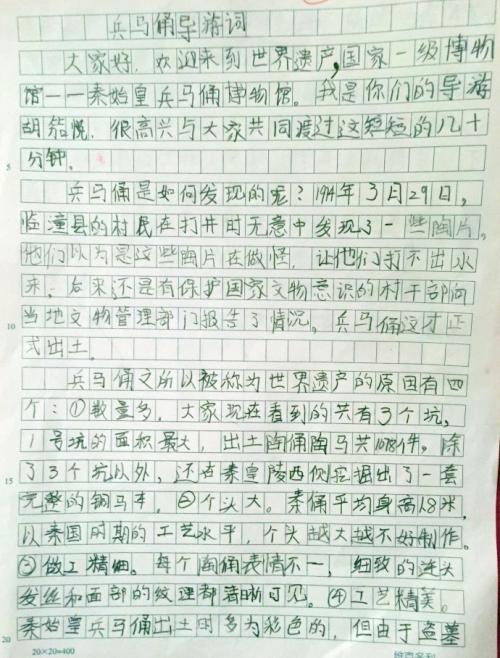 兵马俑导游词
大家好，欢迎来到世界遗产，国家一级博物
馆——秦始皇兵马俑博物馆。我是你们的导游
胡箬悦，很高兴与大家共同渡过这短短的几十
分钟。
5
兵马俑是如何发现的呢？1974年3月29日，
临潼县的村民在打井时无意中发现了一些陶片，
他们以为是这些陶片在做怪，让他们打不出水
来；后来还是有保护国家文物意识的村干部向
10
当地文物管理部门报告了情况。兵马俑这才正
式出土。
兵马俑之所以被称为世界遗产的原因有四
个：①数量多，大家现在看到的共有3个坑，
1号坑的面积最大，出土陶俑陶马共1078件，除
15
了3个坑以外，还在秦皇陵西侧挖掘出了一套
完整的铜马车，②个头大。秦俑平均身高1.8米，
以秦国时期的工艺水平，个头越大越不好制作。
③做工精细。每个陶俑表情不一，细致的连头
发丝和面部的纹理都清晰可见。④工艺精美。
20
秦始皇兵马俑出土时多为彩色的，但由于盗墓
20×20=400